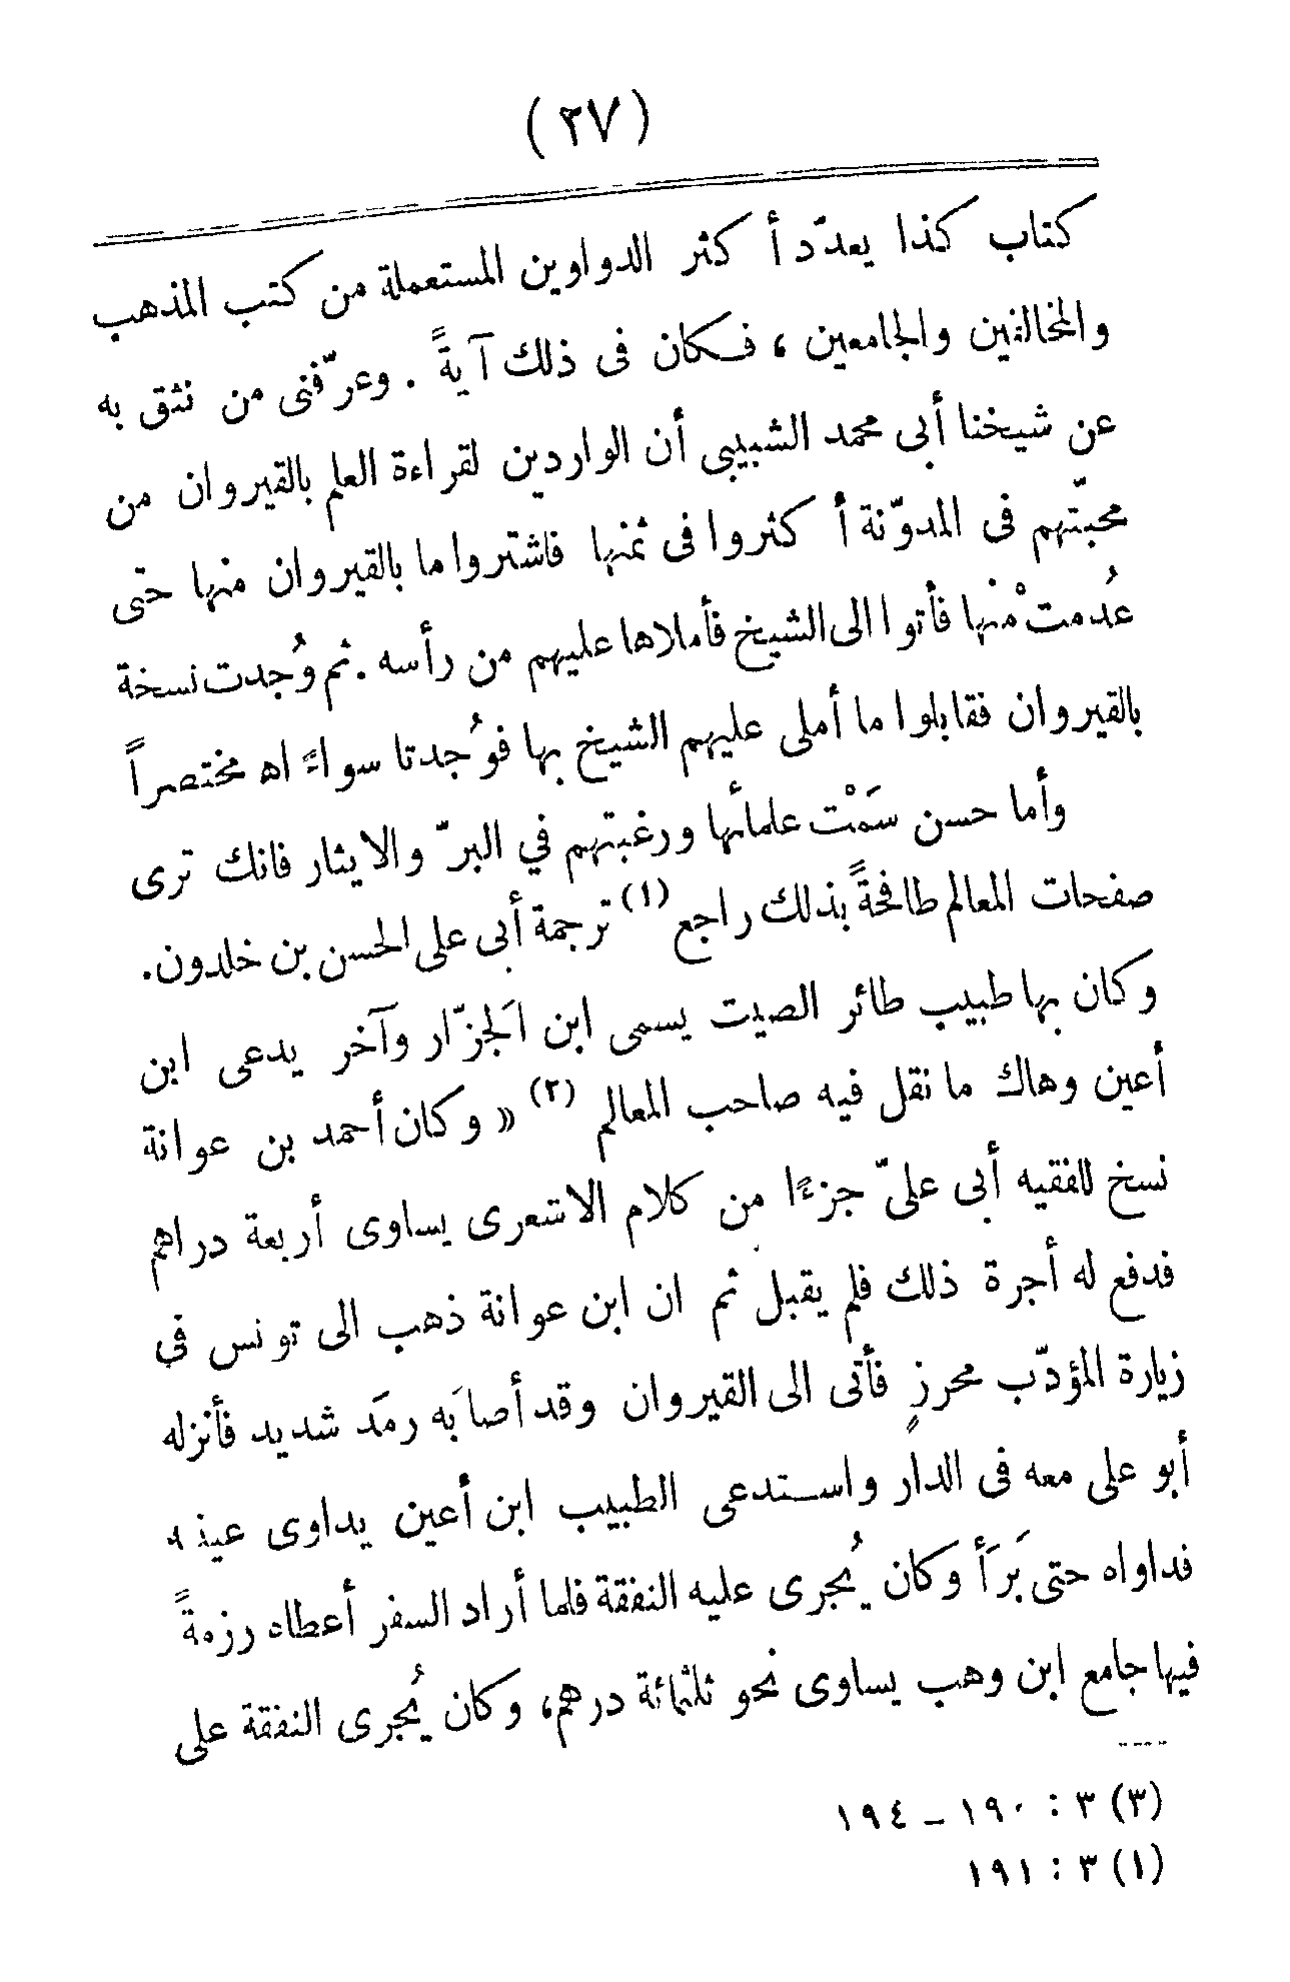 (٣٧)
كتاب كذا يعدّد أكثر الدواوين المستعملة من كتب المذهب
والمخالفين والجامعين ، فكان فى ذلك آيةً . وعرّفنى من نثق به
عن شيخنا أبى محمد الشبيبى أن الواردين لقراءة العلم بالقيروان من
محبّتهم فى المدوّنة أكثروا فى ثمنها فاشتروا ما بالقيروان منها حتى
عُدمتْ منها فأتوا الى الشيخ فأملاها عليهم من رأسه . ثم وُجدت نسخة
بالقيروان فقابلوا ما أملى عليهم الشيخ بها فوُجدتا سواءً اه مختصراً
وأما حسن سَمْت علمائها ورغبتهم في البرّ والايثار فانك ترى
صفحات المعالم طافحةً بذلك راجع (١) ترجمة أبى على الحسن بن خلدون.
وكان بها طبيب طائر الصيت يسمى ابن الجَزّار وآخر يدعى ابن
أعين وهاك ما نقل فيه صاحب المعالم (٢) « وكان أحمد بن عوانة
نسخ للفقيه أبى علىّ جزءًا من كلام الاشعرى يساوى أربعة دراهم
فدفع له أجرة ذلك فلم يقبل ثم ان ابن عوانة ذهب الى تونس في
زيارة المؤدّب محرزٍ فأتى الى القيروان وقد أصابَه رمَد شديد فأنزله
أبو على معه فى الدار واستدعى الطبيب ابن أعين يداوى عينه
فداواه حتى بَرَأ وكان يُجرى عليه النفقة فلما أراد السفر أعطاه رزمةً
فيها جامع ابن وهب يساوى نحو ثلثمائة درهم، وكان يُجرى النفقة على
(٣) ٣ : ١٩٠ ـ ١٩٤
(١) ٣ : ١٩١